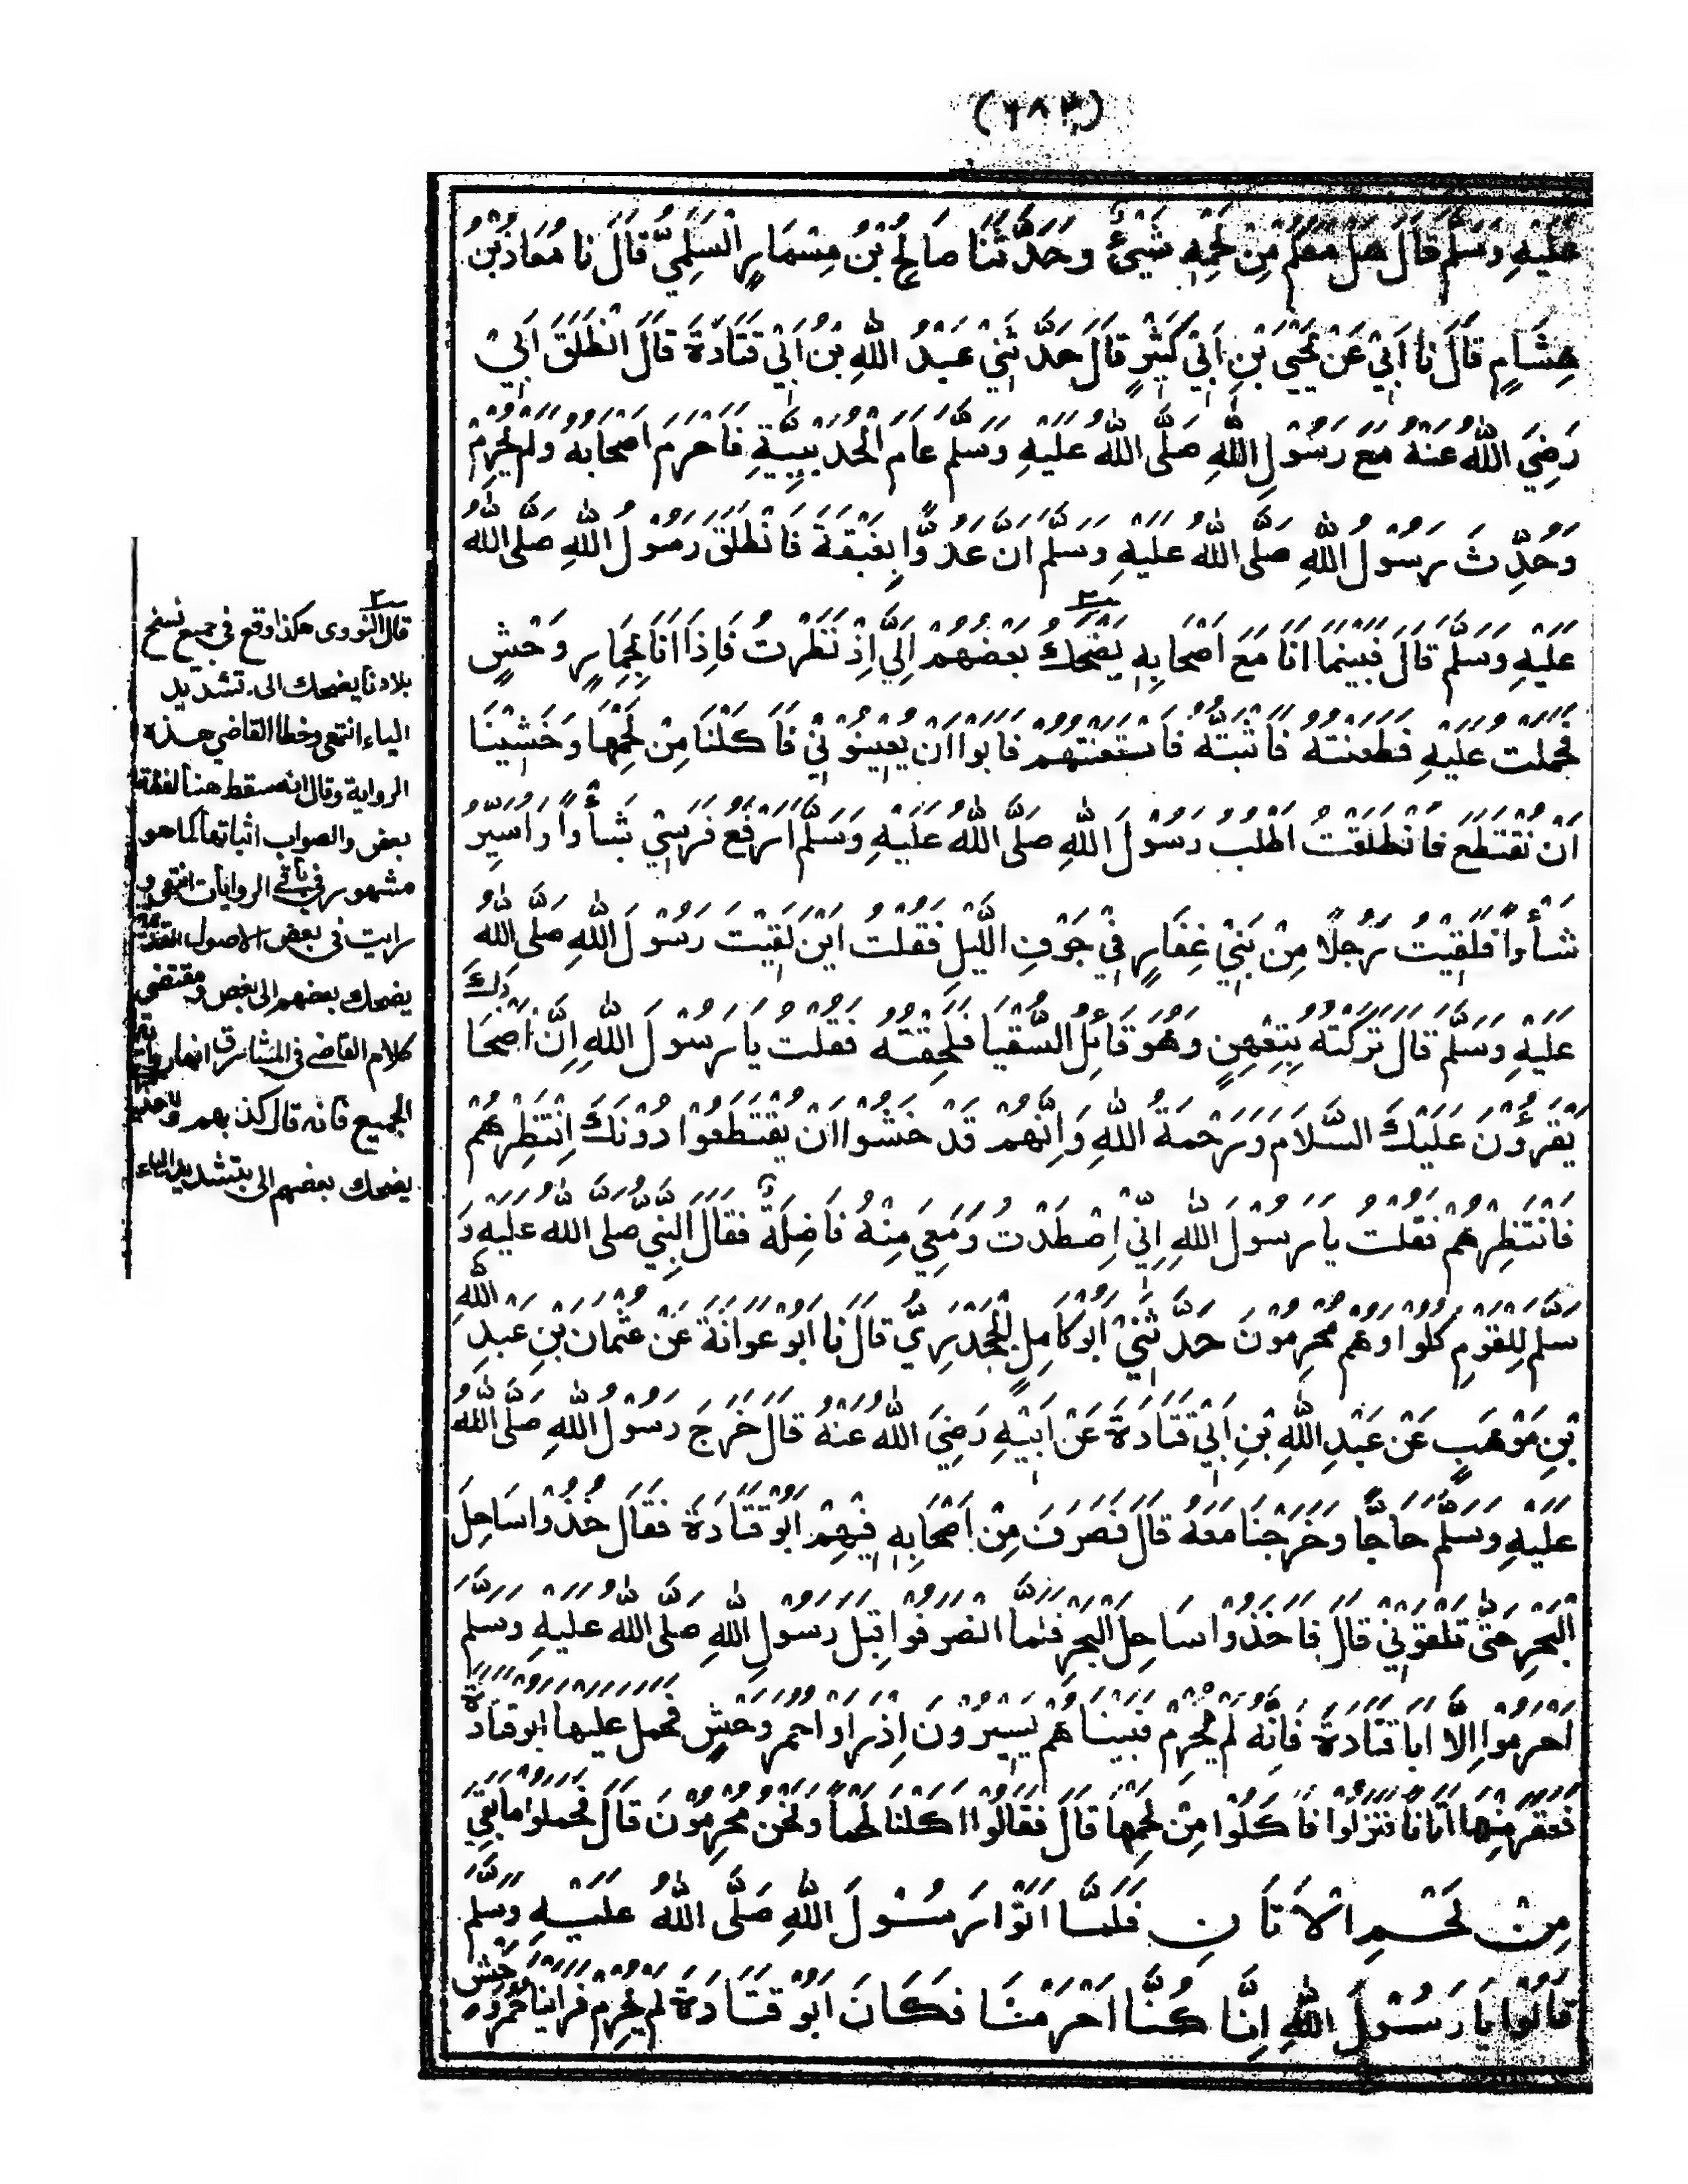 (٢٨٣)
عَلَيْهِ وَسَلَّمَ قَالَ هَلْ مَعَكُمْ مِنْ لَحْمِهِ شَيْئٌ وَحَدَّثَنَا صَالِحُ بْنُ مِسْمَارٍ السُّلَمِيُّ قَالَ نا مُعَاذُ بْنُ
هِشَامٍ قَالَ نا اَبِيْ عَنْ يَحْيَى بْنِ اَبِيْ كَثِيْرٍ قَالَ حَدَّثَنِيْ عَبْدُ اللهِ بْنُ اَبِيْ قَتَادَةَ قَالَ انْطَلَقَ اَبِيْ
رَضِيَ اللهُ عَنْهُ مَعَ رَسُوْلِ اللهِ صَلَّى اللهُ عَلَيْهِ وَسَلَّمَ عَامَ الْحُدَيْبِيَّةِ فَاَحْرَمَ اَصْحَابُهُ وَلَمْ يُحْرِمْ
وَحُدِّثَ رَسُوْلُ اللهِ صَلَّى اللهُ عَلَيْهِ وَسَلَّمَ اَنَّ عَدُوًّا بِغَيْقَةَ فَانْطَلَقَ رَسُوْلُ اللهِ صَلَّى اللهُ
عَلَيْهِ وَسَلَّمَ قَالَ فَبَيْنَمَا اَنَا مَعَ اَصْحَابِهِ يَضْحَكُ بَعْضُهُمْ اِلَيَّ اِذْ نَظَرْتُ فَاِذَا اَنَا بِحِمَارِ وَحْشٍ
فَحَمَلْتُ عَلَيْهِ فَطَعَنْتُهُ فَاَثْبَتُّهُ فَاسْتَعَنْتُهُمْ فَاَبَوْا اَنْ يُعِيْنُوْنِيْ فَاَكَلْنَا مِنْ لَحْمِهَا وَخَشِيْنَا
اَنْ نُقْتَطَعَ فَانْطَلَقْتُ اَطْلُبُ رَسُوْلَ اللهِ صَلَّى اللهُ عَلَيْهِ وَسَلَّمَ اَرْفَعُ فَرَسِيْ شَأْوًا وَاَسِيْرُ
شَأْوًا فَلَقِيْتُ رَجُلًا مِنْ بَنِيْ غِفَارٍ فِيْ جَوْفِ اللَّيْلِ فَقُلْتُ اَيْنَ لَقِيْتَ رَسُوْلَ اللهِ صَلَّى اللهُ
عَلَيْهِ وَسَلَّمَ قَالَ تَرَكْتُهُ بِتِعْهِنَ وَهُوَ قَائِلُ السُّقْيَا فَلَحِقْتُهُ فَقُلْتُ يَا رَسُوْلَ اللهِ اِنَّ اَصْحَابَكَ
يَقْرَءُوْنَ عَلَيْكَ السَّلَامَ وَرَحْمَةَ اللهِ وَاِنَّهُمْ قَدْ خَشُوْا اَنْ يُقْتَطَعُوْا دُوْنَكَ اِنْتَظِرْهُمْ
فَانْتَظِرْهُمْ فَقُلْتُ يَا رَسُوْلَ اللهِ اِنِّيْ اِصْطَدْتُ وَمَعِيَ مِنْهُ فَاضِلَةٌ فَقَالَ النَّبِيُّ صَلَّى اللهُ عَلَيْهِ وَ
سَلَّمَ لِلْقَوْمِ كُلُوْا وَهُمْ مُحْرِمُوْنَ حَدَّثَنِيْ اَبُوْ كَامِلٍ الْجَحْدَرِيُّ قَالَ نا اَبُوْ عَوَانَةَ عَنْ عُثْمَانَ بْنِ عَبْدِ اللهِ
بْنِ مَوْهَبٍ عَنْ عَبْدِ اللهِ بْنِ اَبِيْ قَتَادَةَ عَنْ اَبِيْهِ رَضِيَ اللهُ عَنْهُ قَالَ خَرَجَ رَسُوْلُ اللهِ صَلَّى اللهُ
عَلَيْهِ وَسَلَّمَ حَاجًّا وَخَرَجْنَا مَعَهُ قَالَ فَصَرَفَ مِنْ اَصْحَابِهِ فِيْهِمْ اَبُوْ قَتَادَةَ فَقَالَ خُذُوْا سَاحِلَ
الْبَحْرِ حَتَّى تَلْقَوْنِيْ قَالَ فَاَخَذُوْا سَاحِلَ الْبَحْرِ فَلَمَّا انْصَرَفُوْا قِبَلَ رَسُوْلِ اللهِ صَلَّى اللهُ عَلَيْهِ وَسَلَّمَ
اَحْرَمُوْا اِلَّا اَبَا قَتَادَةَ فَاِنَّهُ لَمْ يُحْرِمْ فَبَيْنَاهُمْ يَسِيْرُوْنَ اِذْ رَاَوْا حُمُرَ وَحْشٍ فَحَمَلَ عَلَيْهَا اَبُوْ قَتَادَةَ
فَعَقَرَ مِنْهَا اَتَانًا فَنَزَلُوْا فَاَكَلُوْا مِنْ لَحْمِهَا قَالَ فَقَالُوْا اَكَلْنَا لَحْمًا وَنَحْنُ مُحْرِمُوْنَ قَالَ فَحَمَلُوْا مَا بَقِيَ
مِنْ لَحْمِ الْاَتَانِ فَلَمَّا اَتَوْا رَسُوْلَ اللهِ صَلَّى اللهُ عَلَيْهِ وَسَلَّمَ
قَالُوْا يَا رَسُوْلَ اللهِ اِنَّا كُنَّا اَحْرَمْنَا فَكَانَ اَبُوْ قَتَادَةَ لَمْ يُحْرِمْ فَرَاَيْنَا حُمُرَ وَحْشٍ
قال النووى هكذا وقع فى جميع نسخ
بلادنا يضحك الى بتشديد
الياء انتهى وخطا القاضي هذه
الرواية وقال انه سقط هنا لفظة
بعض والصواب اثباتها كما هو
مشهور فى باقى الروايات انتهى و
رايت فى بعض الاصول
يضحك بعضهم الى بعض ومقتضى
كلام القاضى فى المشارق انها رواية
الجميع فانه قال كذا
يضحك بعضهم الى بتشديد الياء